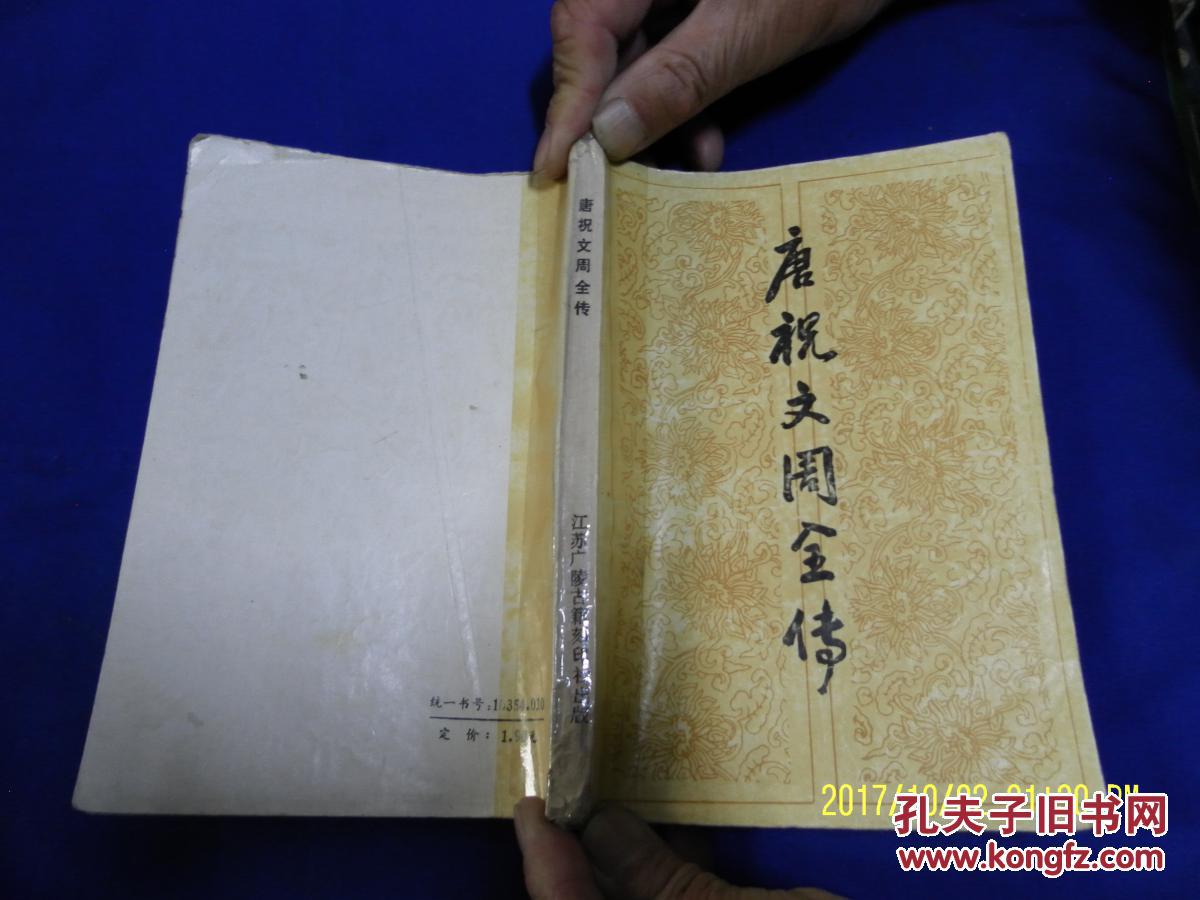 唐祝文周全传
唐祝文周全传
江苏广陵古籍刻印社出版
统一书号:
定 价:
2017/10/22
孔夫子旧书网
www.kongfz.com